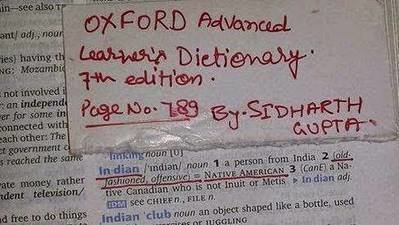 in—see also TE
ant/ adj., noun
ies) having th
NG: Mozambic
not involved i
: an independe
er for some in
connected with
each other: The
ct government c
s reached the same
vate money rather
ndent television/
d free to do things
OXFORD Advanced
Learner's Dictionary.
7th edition.
Page No. 789 By. SIDHARTH
GUPTA.
linking noun [U]
In·dian /ˈɪndiən/ noun 1 a person from India 2 (old-
fashioned, offensive) = NATIVE AMERICAN 3 (CanE) a Na-
tive Canadian who is not Inuit or Metis ▸ In·dian adj.
IDM see CHIEF n., FILE n.
Indian ˈclub noun an object shaped like a bottle, used
or JUGGLING